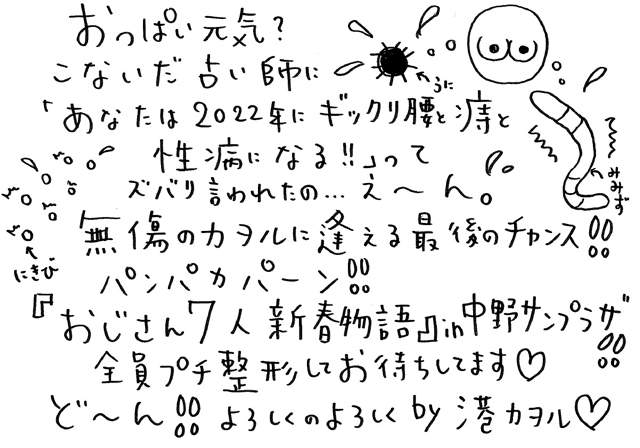 おっぱい元気?
こないだ占い師に
「あなたは2022年にギックリ腰と痔と
性病になる!!」って
ズバリ言われたの…え〜ん。
無傷のカヲルに逢える最後のチャンス!!
パンパカパーン!!
『おじさん7人新春物語』in中野サンプラザ!!
全員プチ整形してお待ちしてます♡
ど〜ん!!よろしくのよろしく by 港カヲル♡
うに
みみず
にきび